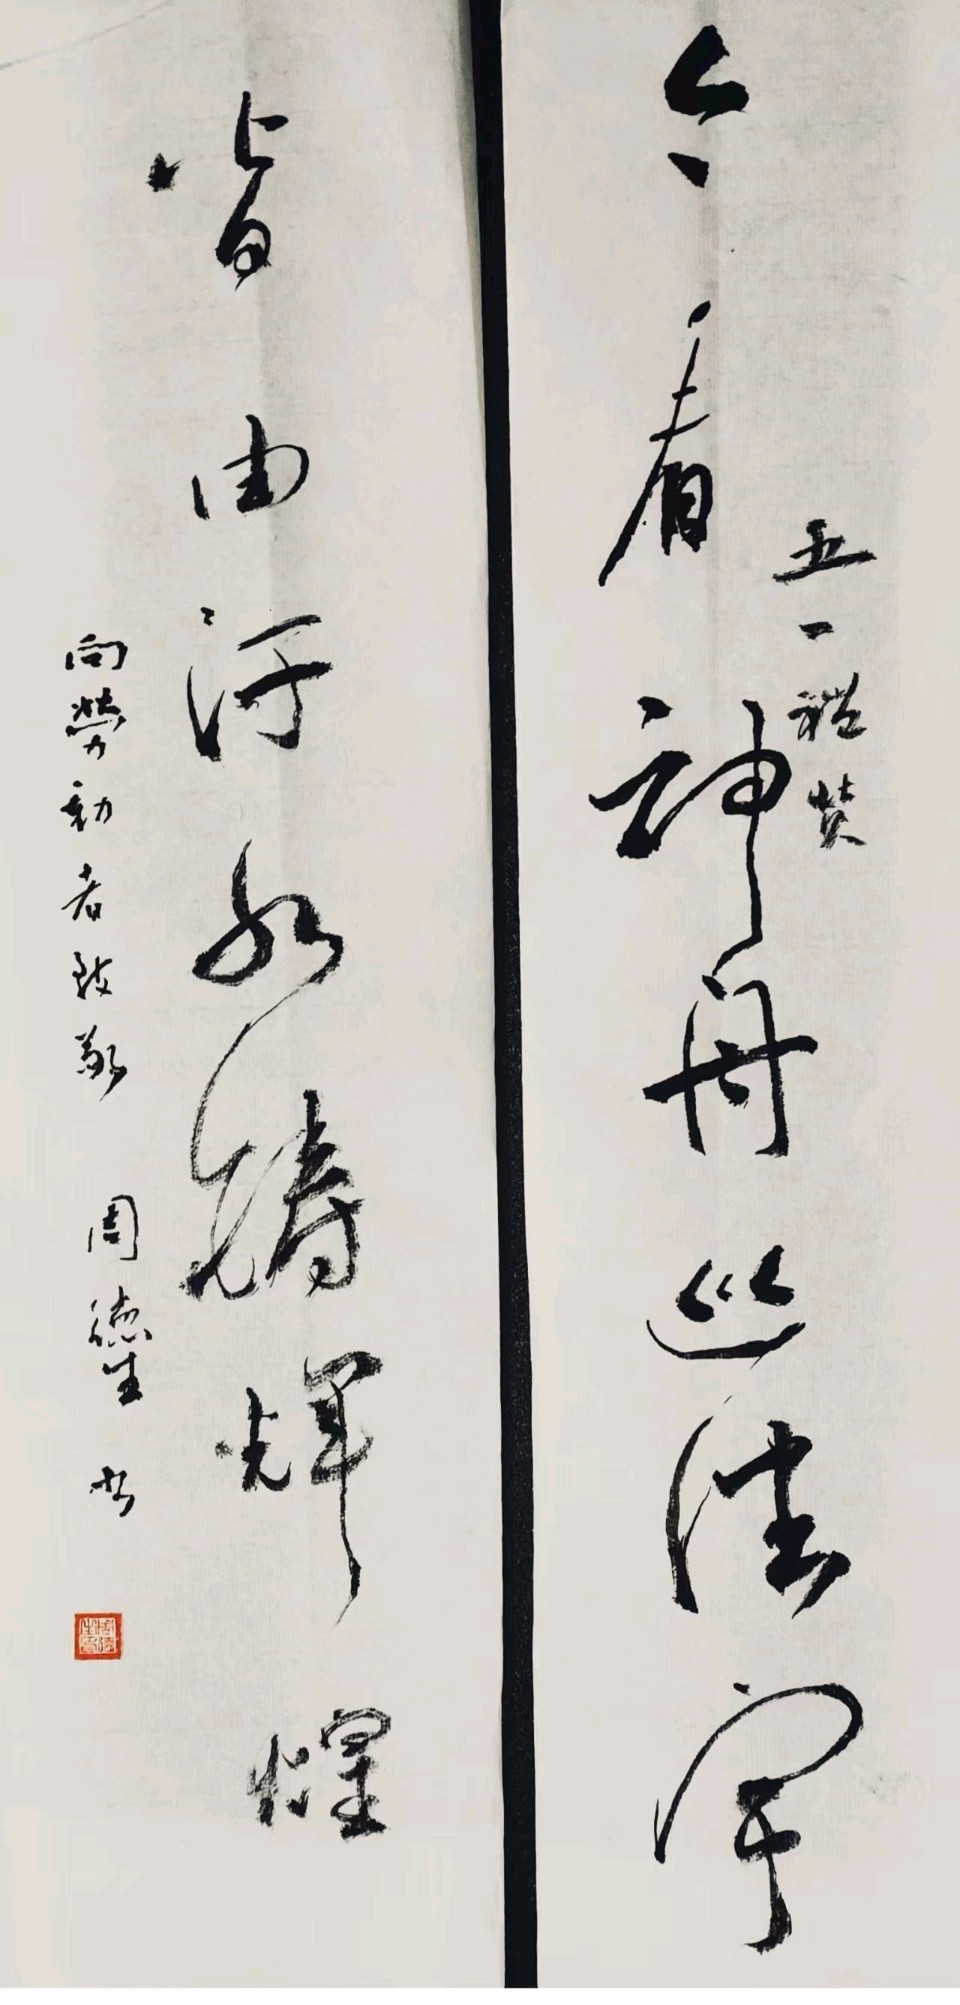 今看神舟巡浩宇
五一礼赞
皆由汗水铸辉煌
向劳动者致敬
周德生书